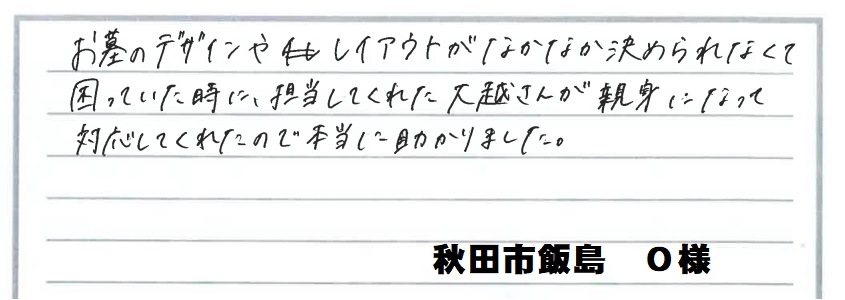 お墓のデザインやレイアウトがなかなか決められなくて
困っていた時に、担当してくれた大越さんが親身になって
対応してくれたので本当に助かりました。
秋田市飯島　O様